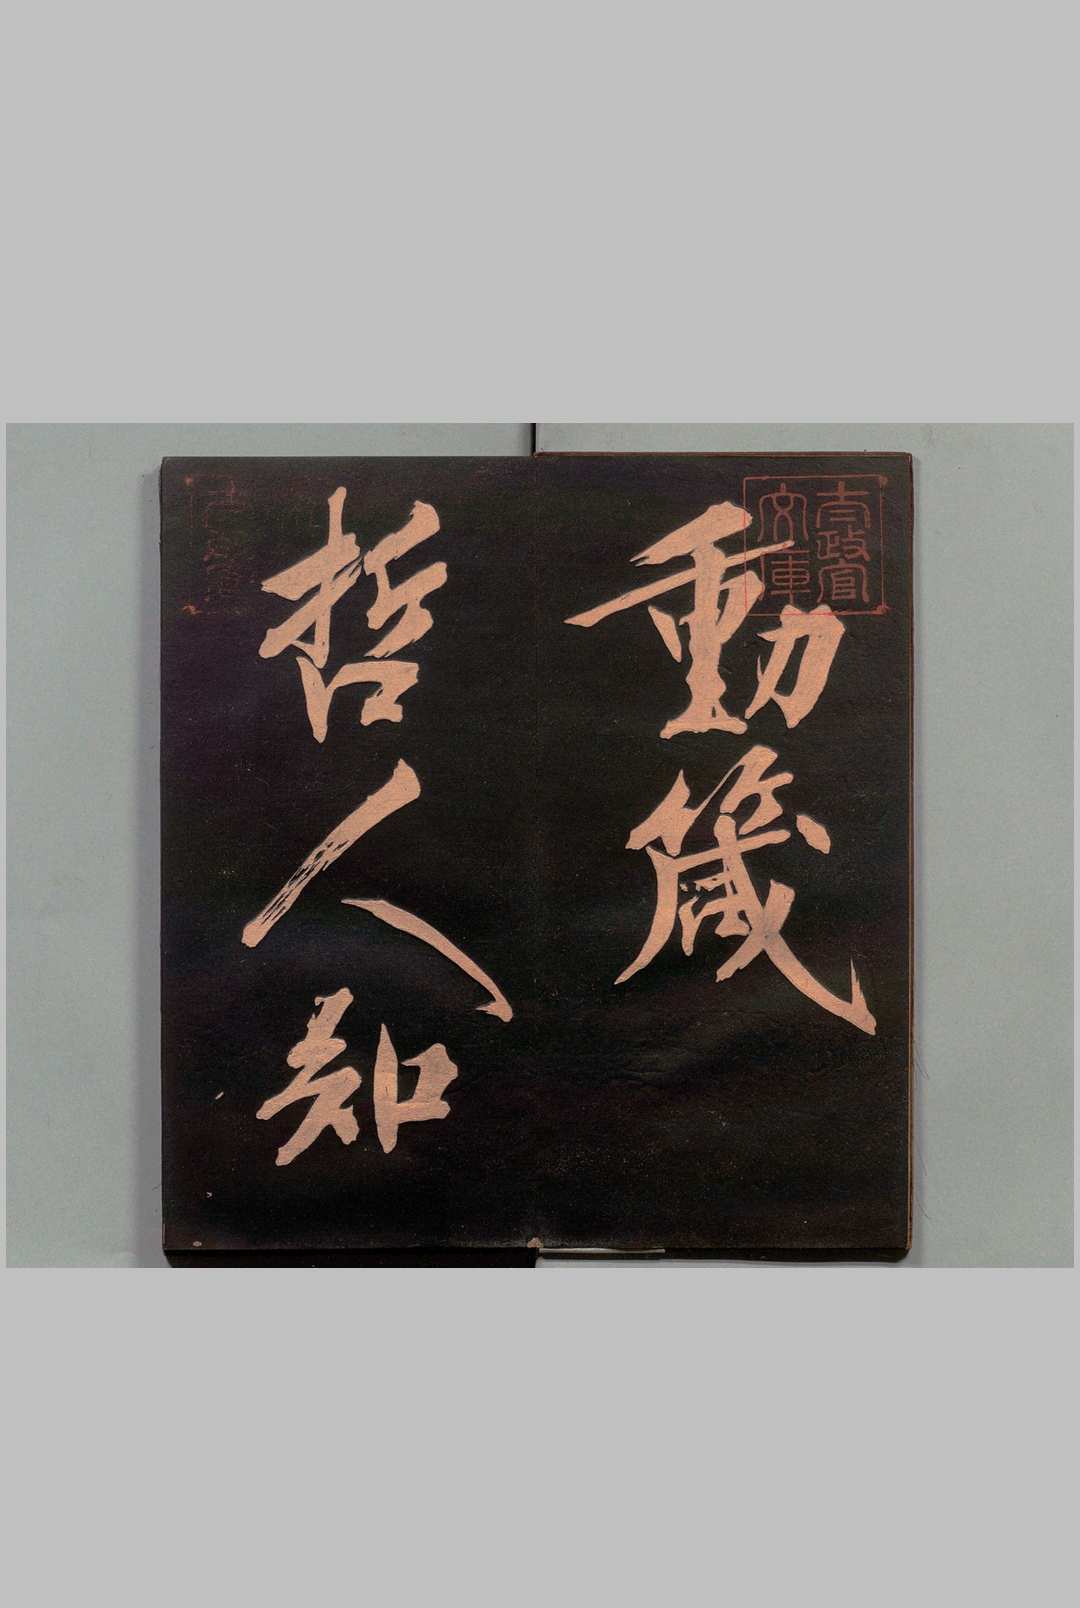 動箴
哲人知
太政官
文庫